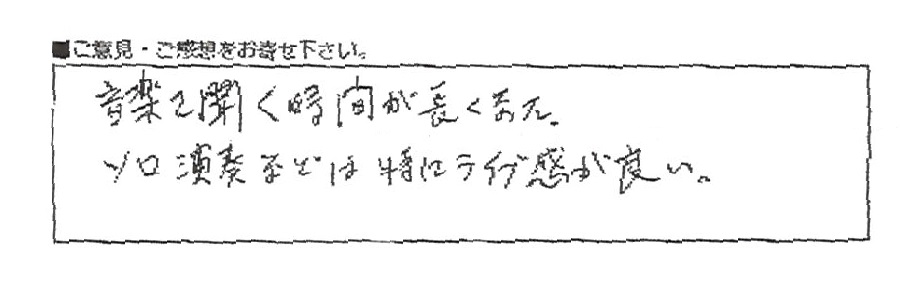 ■ご意見・ご感想をお寄せ下さい。
音楽を聞く時間が長くなった。
ソロ演奏などは特にライブ感が良い。